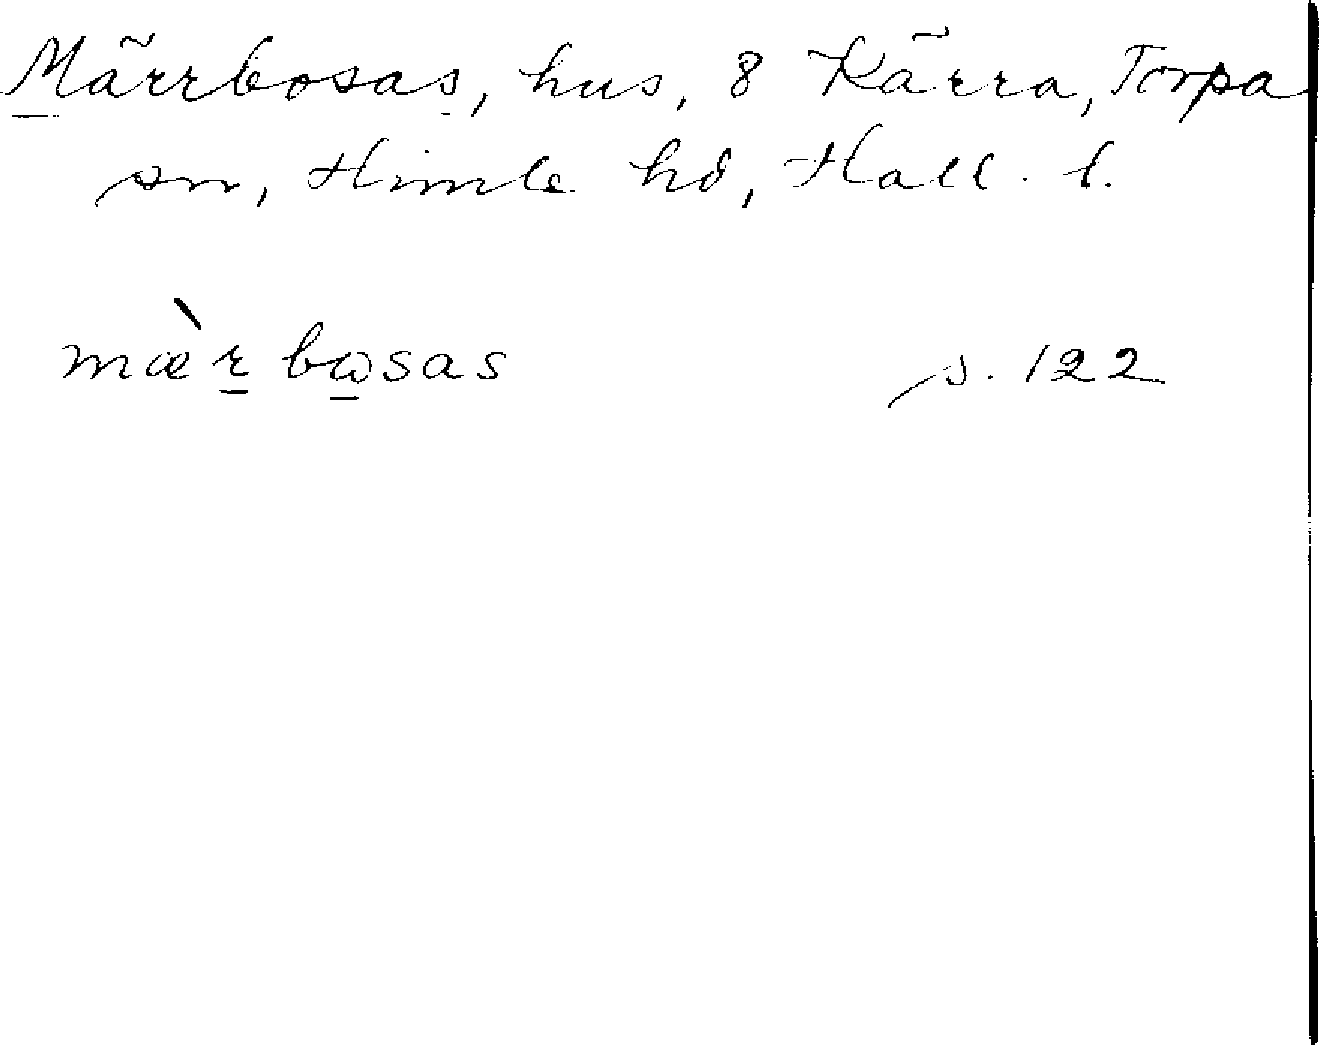 Märrbosas, hus, 8 Kärra, Torpa
sn, Himle hd, Hall. l.
mæ̀r̲ bɷ̲sas s. 122